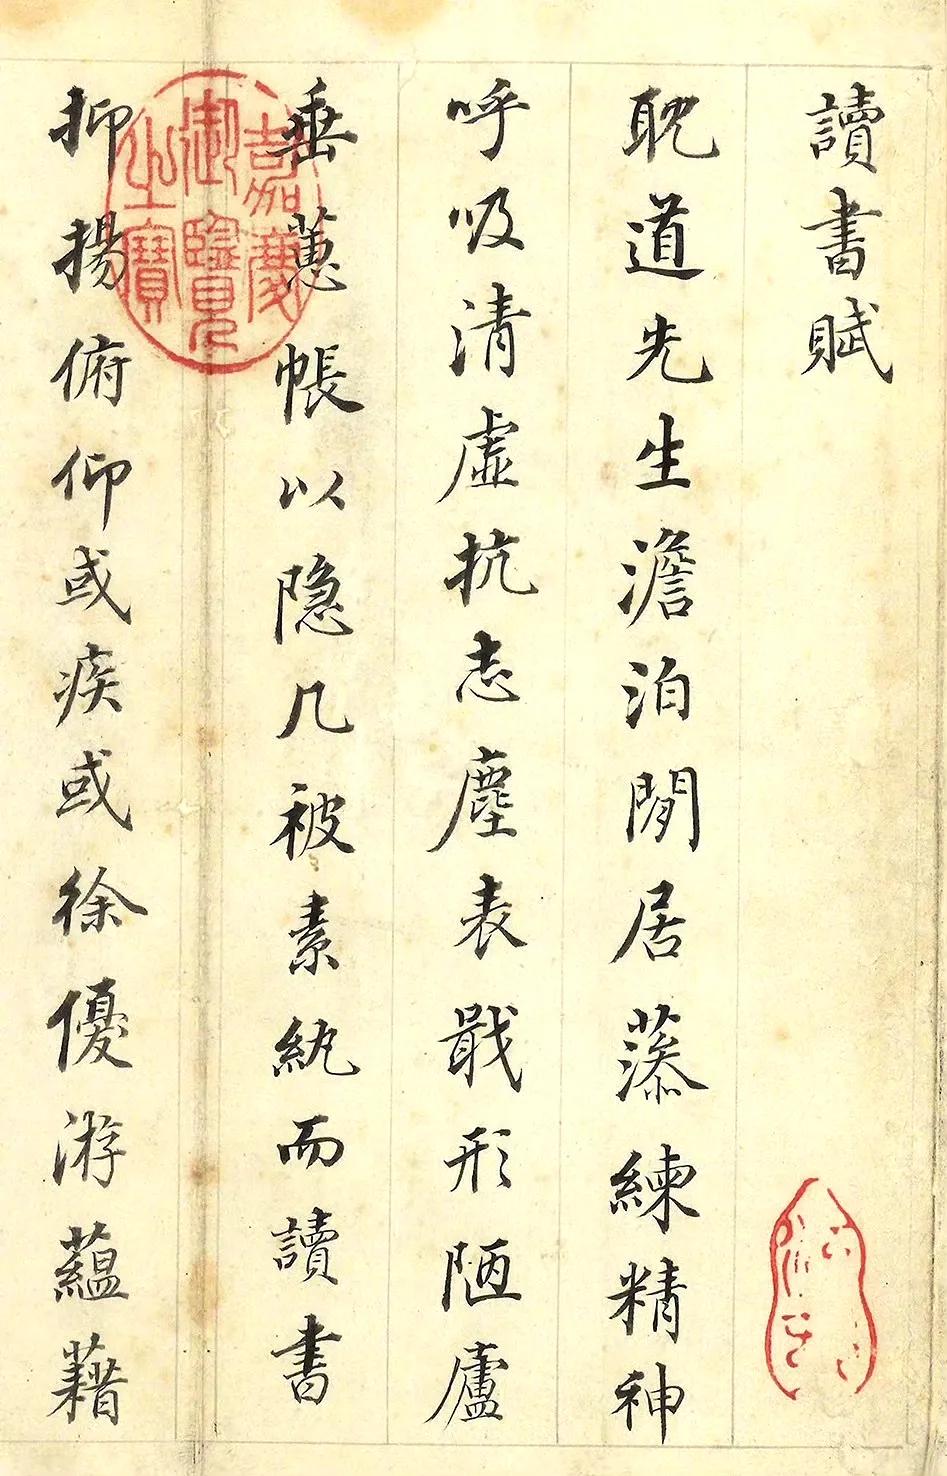 讀書賦
耽道先生澹泊閒居蓚練精神
呼吸清虛抗志塵表戢形陋廬
垂蕙帳以隐几被素紈而讀書
抑揚俯仰或疾或徐優游蘊藉
嘉慶御覽之寶